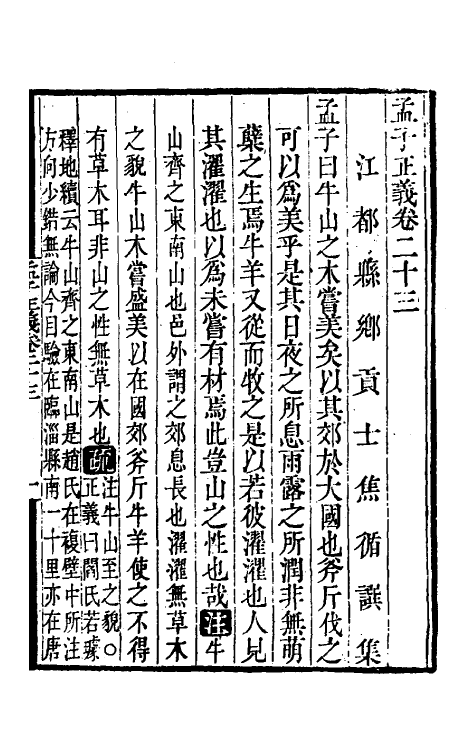 孟子正義卷二十三
江都縣鄉貢士焦循譔集
孟子曰牛山之木嘗美矣以其郊於大國也斧斤伐之
可以爲美乎是其日夜之所息雨露之所潤非無萌
櫱之生焉牛羊又從而牧之是以若彼濯濯也人見
其濯濯也以爲未嘗有材焉此豈山之性也哉注牛
山齊之東南山也邑外謂之郊息長也濯濯無草木
之貌牛山木嘗盛美以在國郊斧斤牛羊使之不得
有草木耳非山之性無草木也疏
注牛山至之貌○
正義曰閻氏若璩
釋地續云牛山齊之東南山是趙氏在複壁中所注
方向少錯無論今目驗在臨淄縣南一十里亦在唐
孟子正義卷二十三
一